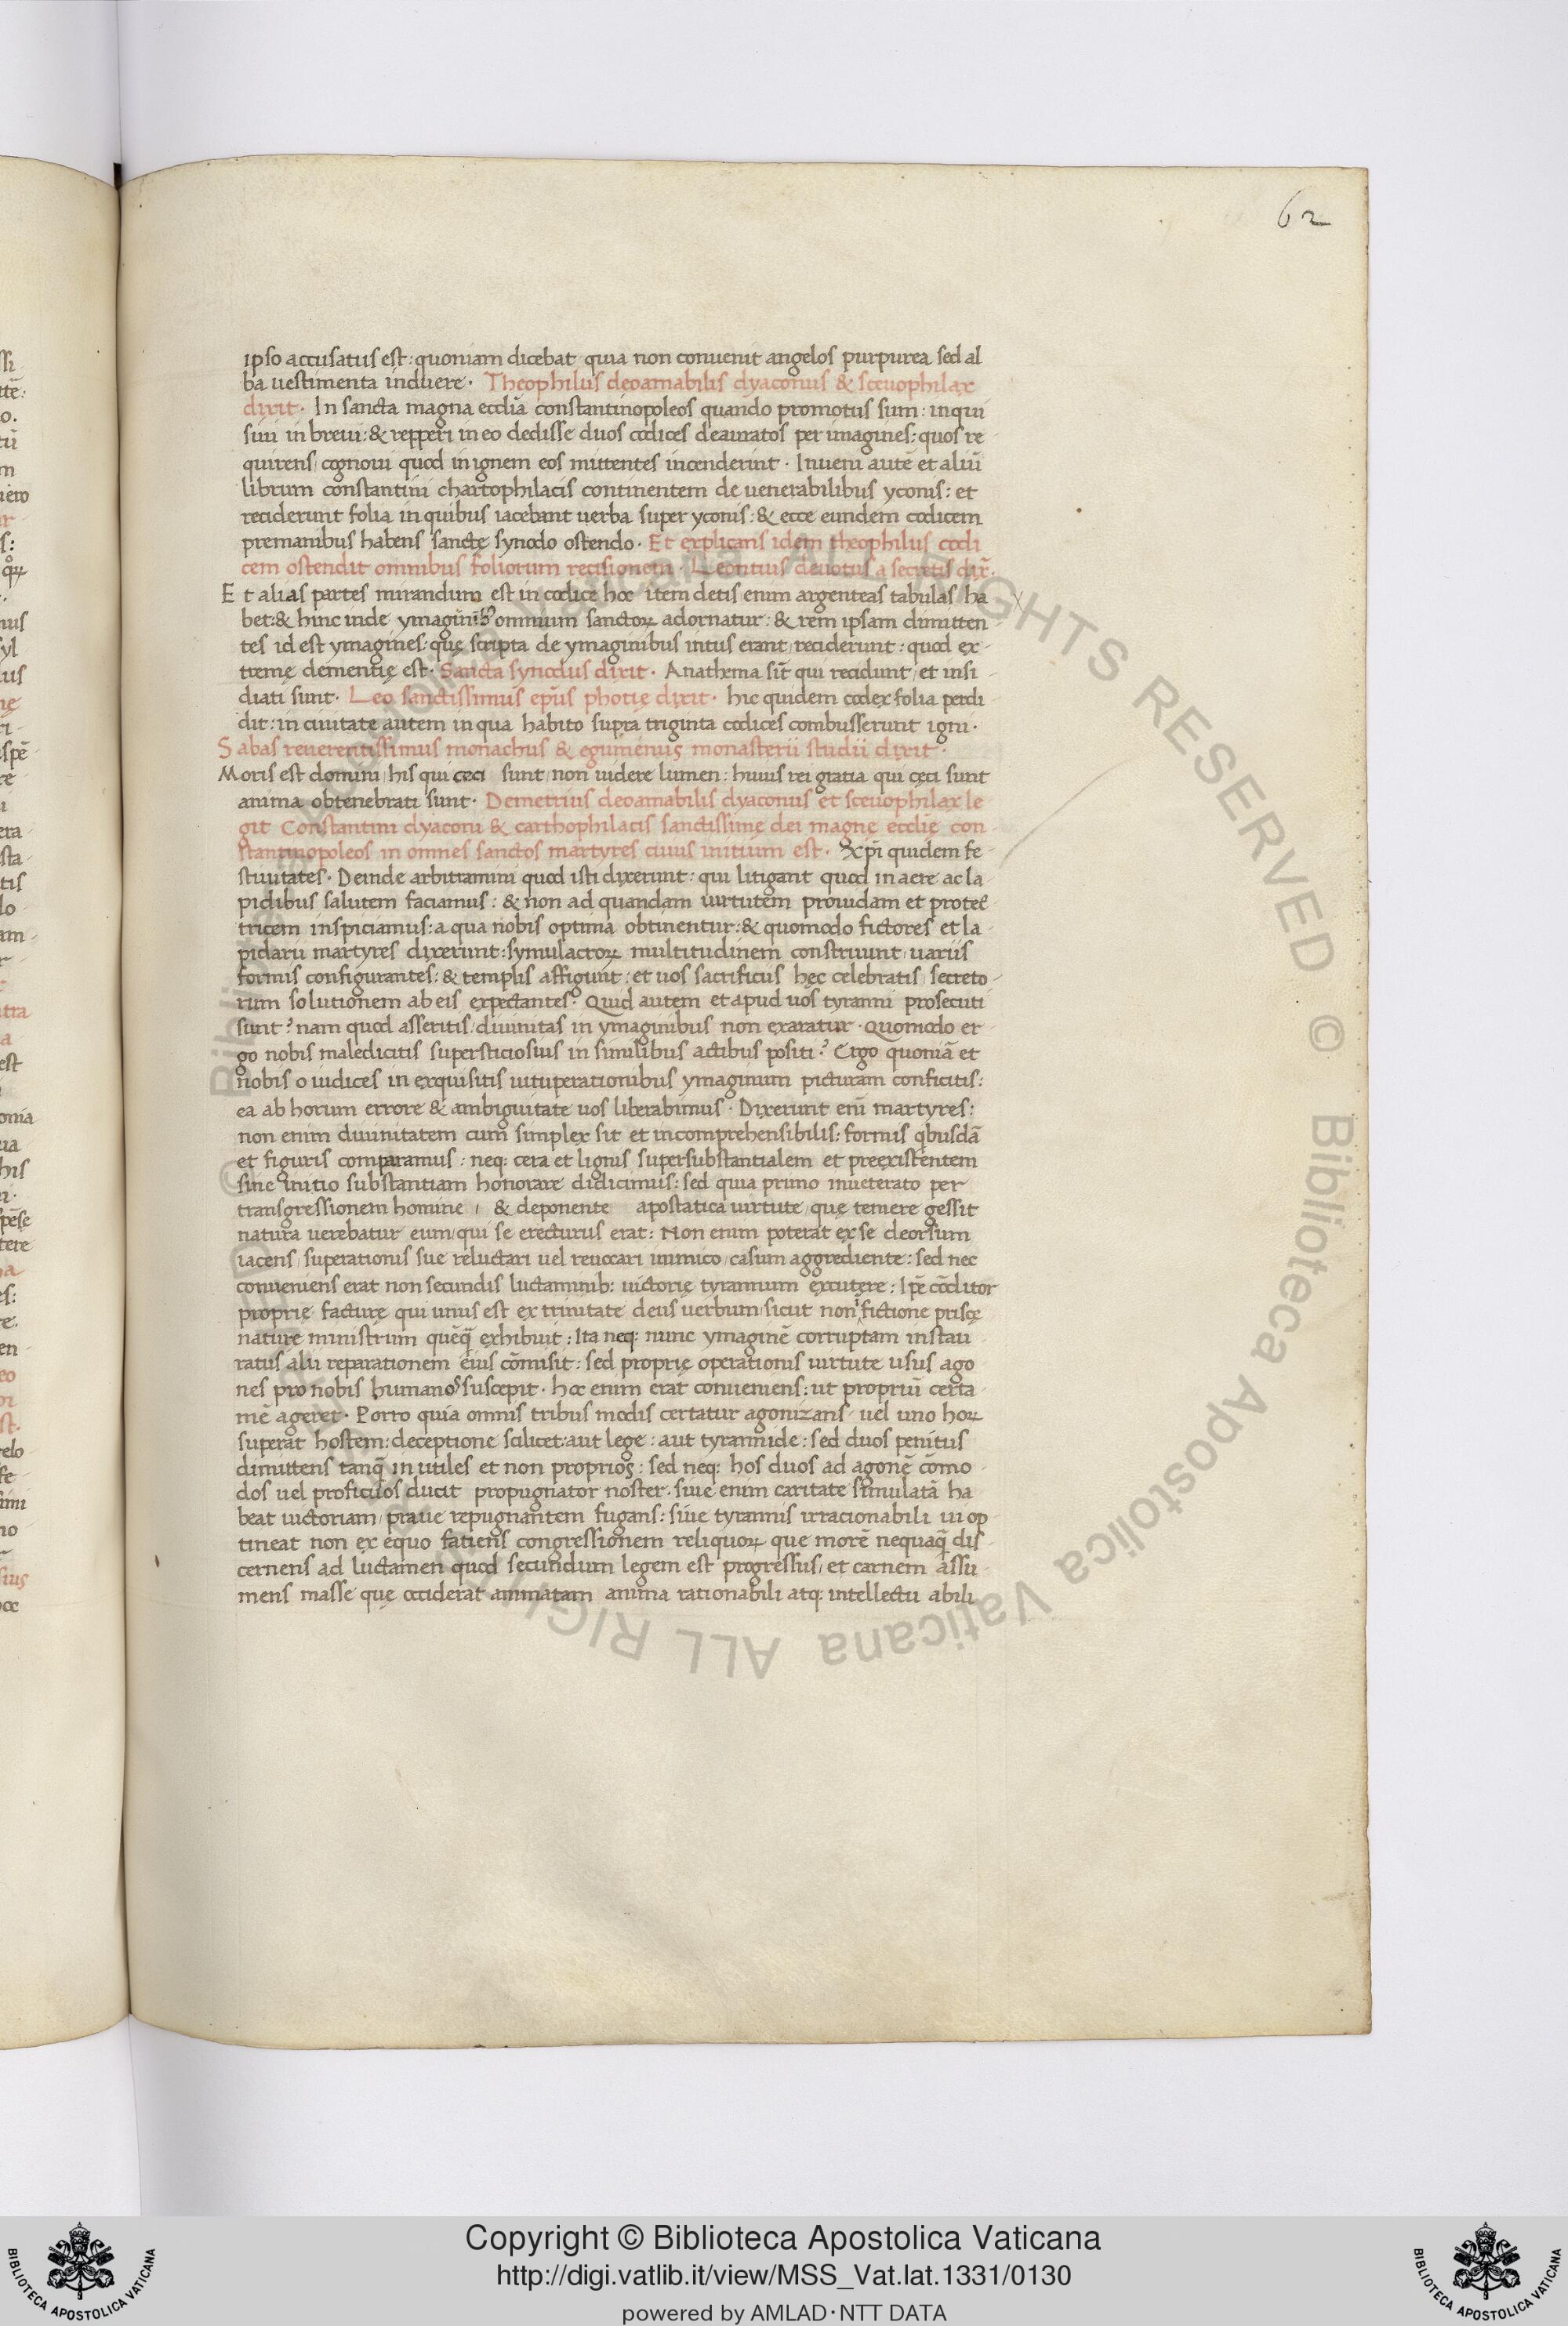 62
ipso accusatus est: quoniam dicebat quia non conuenit angelos purpurea sed al
ba uestimenta induere. Theophilus deoamabilis dyaconus & sceuophilax
dixit. In sancta magna eccl̄ia constantinopoleos quando promotus sum: inqui
siui in breui: & repperi in eo dedisse duos codices deauratos per imagines: quos re
quirens cognoui quod in ignem eos mittentes incenderint. Inueni autē et aliū
librum constantini chartophilacis continentem de uenerabilibus yconis: et
reciderunt folia in quibus iacebant uerba super yconis: & ecce eundem codicem
premanibus habens sanctę synodo ostendo. Et explicans idem theophilus codi
cem ostendit omnibus foliorum recisionem. Leontius deuotus a secretis dix̄.
Et alias partes mirandum est in codice hoc item detis enim argenteas tabulas ha
bet: & hinc inde ymaginibꝰ omnium sanctoꝝ adornatur: & rem ipsam dimitten
tes id est ymagines: quę scripta de ymaginibus intus erant reciderunt: quod ex
tremę dementię est. Sancta synodus dixit. Anathema sit qui recidunt et insi
diati sunt. Leo sanctissimus ep̄us photię dixit. hic quidem codex folia perdi
dit: in ciuitate autem in qua habito supra triginta codices combusserunt igni.
Sabas reuerentissimus monachus & egumenus monasterii studii dixit.
Moris est domini his qui ceci sunt non uidere lumen: huius rei gratia qui cęci sunt
anima obtenebrati sunt. Demetrius deoamabilis dyaconus et sceuophilax le
git Constantini dyaconi & carthophilacis sanctissimę dei magnę eccl̄ię con
stantinopoleos in omnes sanctos martyres cuius initium est. Xp̄i quidem fe
stiuitates. Deinde arbitramini quod isti dixerunt: qui litigant quod in aere ac la
pidibus salutem faciamus: & non ad quandam uirtutem prouidam et protec
tricem inspiciamus: a qua nobis optima obtinentur: & quomodo fictores et la
pidarii martyres dixerunt: symulacroꝝ multitudinem construunt uariis
formis configurantes: & templis affigunt: et uos sacrificiis hęc celebratis secreto
rum solutionem ab eis expectantes. Quid autem et apud uos tyranni prosecuti
sunt? nam quod asseritis diuinitas in ymaginibus non exaratur. Quomodo er
go nobis maledicitis supersticiosius in similibus actibus positi? Ergo quoniā et
nobis o iudices in exquisitis uituperationibus ymaginum picturam conficitis:
ea ab horum errore & ambiguitate uos liberabimus. Dixerunt enī martyres:
non enim diuinitatem cum simplex sit et incomprehensibilis: formis qbusdā
et figuris comparamus: neq: cera et lignis supersubstantialem et preexistentem
sine initio substantiam honorare didicimus: sed quia primo inueterato per
transgressionem homine & deponente apostatica uirtute quę temere gessit
natura uerebatur eum qui se erecturus erat: Non enim poterat ex se deorsum
iacens superationis sue reluctari uel reuocari inimico casum aggrediente: sed nec
conueniens erat non secundis luctaminib: uictorię tyrannum excutere: Ip̄e cōditor
proprie facturę qui unus est ex trinitate deus uerbum sicut non fictione priscę
naturę ministrum quēq̄ exhibuit: Ita neq: nunc ymaginē corruptam instau
ratus alii reparationem eius cōmisit: sed proprię operationis uirtute usus ago
nes pro nobis humanos suscepit. hoc enim erat conueniens: ut propriū certa
mē ageret. Porro quia omnis tribus modis certatur agonizans uel uno hoꝝ
superat hostem: deceptione scilicet: aut lege: aut tyrannide: sed duos penitus
dimittens tanq̄ inutiles et non proprios: sed neq: hos duos ad agonē cōmo
dos uel proficuos ducit propugnator noster. siue enim caritate simulatā ha
beat uictoriam praue repugnantem fugans: siue tyrannis irracionabili ui op
tineat non ex equo fatiens congressionem reliquoꝝ que morē nequaq̄ dis
cernens ad luctamen quod secundum legem est progressus et carnem assu
mens masse quę ceciderat animatam anima rationabili atq: intellectu abili
Copyright © Biblioteca Apostolica Vaticana
http://digi.vatlib.it/view/MSS_Vat.lat.1331/0130
powered by AMLAD·NTT DATA